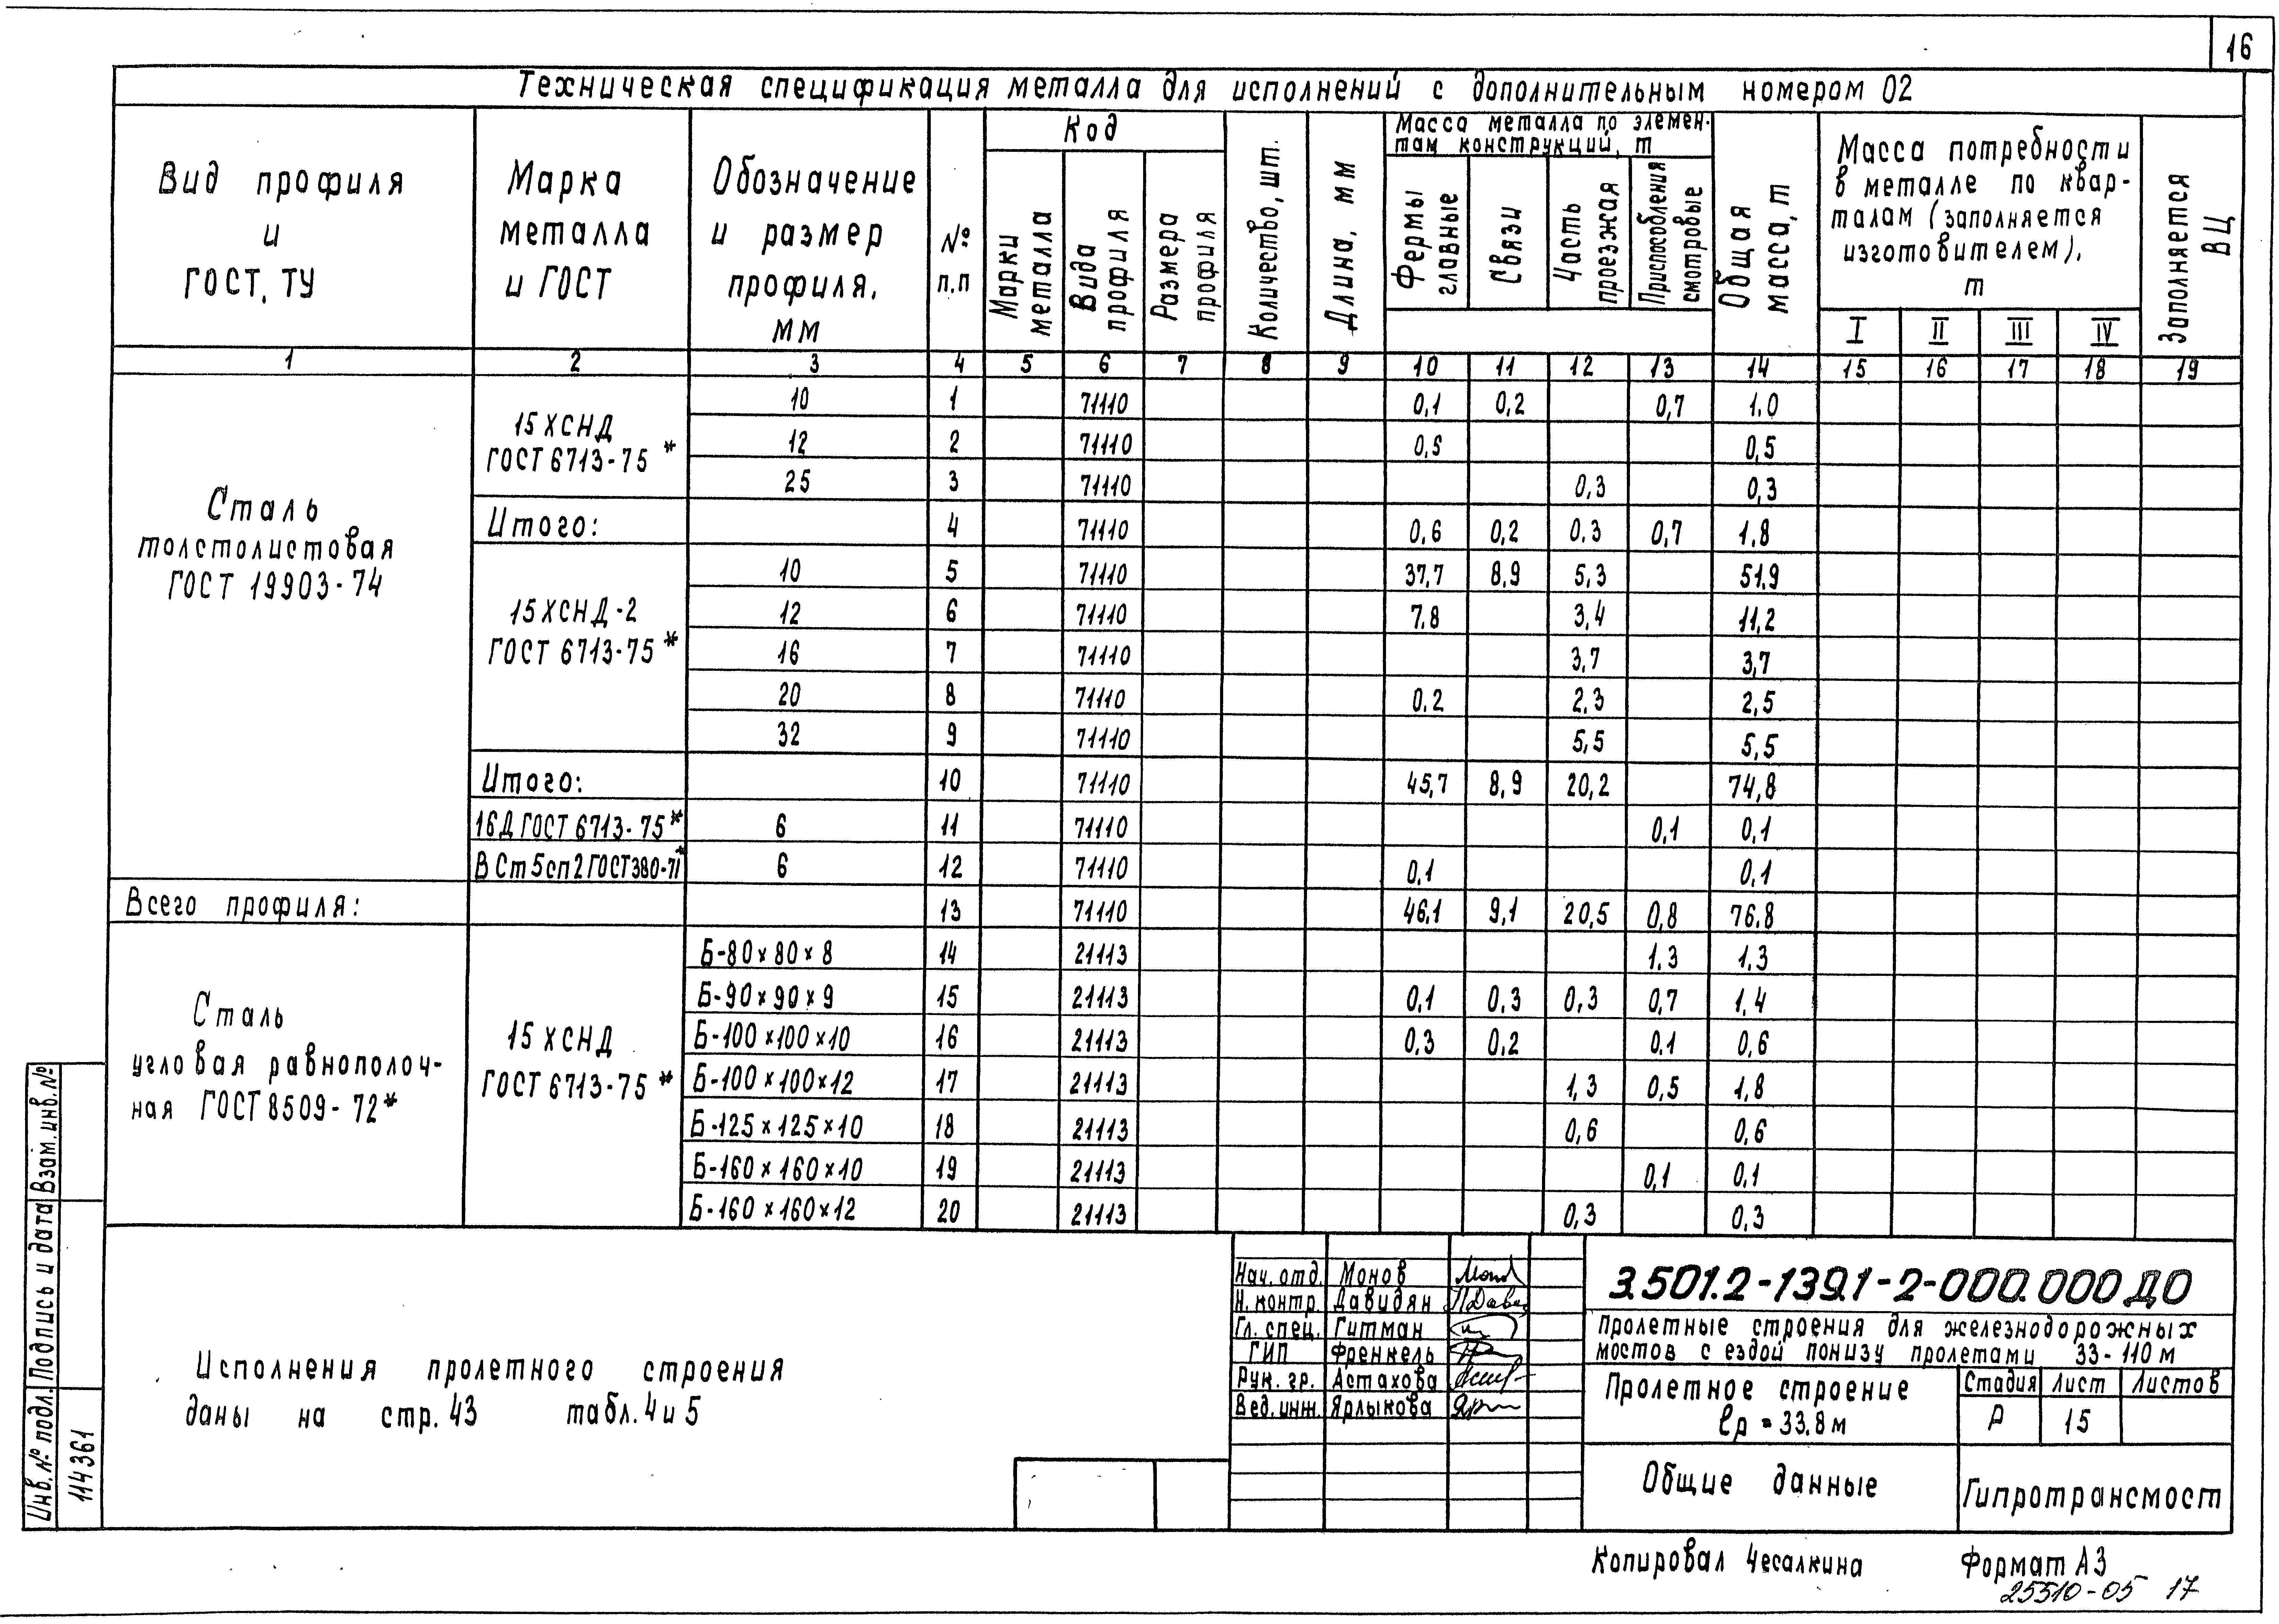 16
Техническая спецификация металла для исполнений с дополнительным номером 02
Вид профиля и ГОСТ, ТУ
Марка металла и ГОСТ
Обозначение и размер профиля, мм
№ п.п
Код
Марки металла
Вида профиля
Размера профиля
Количество, шт.
Длина, мм
Масса металла по элемен-
там конструкций, т
Фермы главные
Связи
Часть проезжая
Приспособления смотровые
Общая масса, т
Масса потребности
в металле по квар-
талам (заполняется
изготовителем),
т
I II III IV
Заполняется ВЦ
1 2 3 4 5 6 7 8 9 10 11 12 13 14 15 16 17 18 19
Сталь
толстолистовая
ГОСТ 19903-74
15ХСНД
ГОСТ 6713-75*
10 1 71110 0,1 0,2 0,7 1,0
12 2 71110 0,5 0,5
25 3 71110 0,3 0,3
Итого: 4 71110 0,6 0,2 0,3 0,7 1,8
15ХСНД-2
ГОСТ 6713-75*
10 5 71110 37,7 8,9 5,3 51,9
12 6 71110 7,8 3,4 11,2
16 7 71110 3,7 3,7
20 8 71110 0,2 2,3 2,5
32 9 71110 5,5 5,5
Итого: 10 71110 45,7 8,9 20,2 74,8
16Д ГОСТ 6713-75* 6 11 71110 0,1 0,1
ВСт5сп2 ГОСТ380-71* 6 12 71110 0,1 0,1
Всего профиля: 13 71110 46,1 9,1 20,5 0,8 76,8
Сталь
угловая равнополоч-
ная ГОСТ 8509-72*
15ХСНД
ГОСТ 6713-75*
Б-80×80×8 14 21113 1,3 1,3
Б-90×90×9 15 21113 0,1 0,3 0,3 0,7 1,4
Б-100×100×10 16 21113 0,3 0,2 0,1 0,6
Б-100×100×12 17 21113 1,3 0,5 1,8
Б-125×125×10 18 21113 0,6 0,6
Б-160×160×10 19 21113 0,1 0,1
Б-160×160×12 20 21113 0,3 0,3
Исполнения пролетного строения
даны на стр. 43 табл. 4 и 5
Нач. отд. Монов
Н. контр. Давидян
Гл. спец. Гитман
ГИП Френкель
Рук. гр. Астахова
Вед. инж. Ярлыкова
3.501.2-139.1-2-000.000 ДО
Пролетные строения для железнодорожных
мостов с ездой понизу пролетами 33-110 м
Пролетное строение
ℓр = 33,8 м
Стадия Лист Листов
Р 15
Общие данные
Гипротрансмост
Инв. № подл. Подпись и дата Взам. инв. №
114361
Копировал Чесалкина Формат А3
25510-05 17